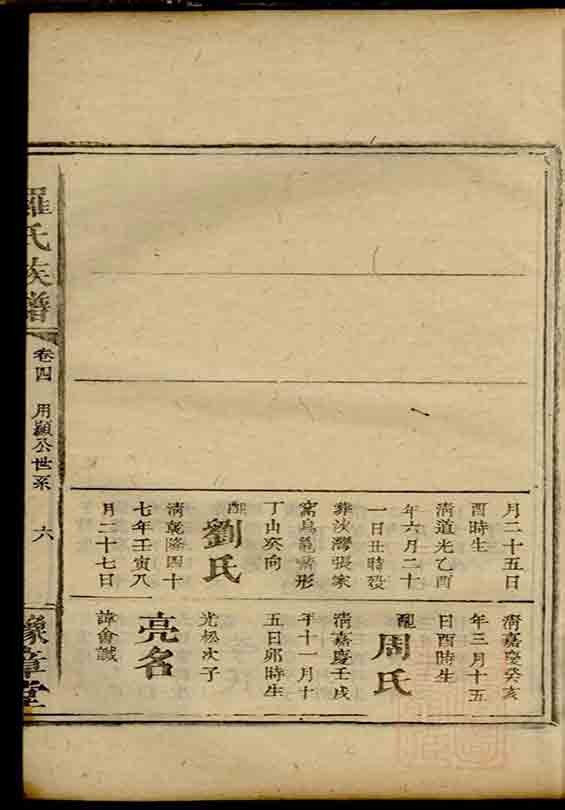 月二十五日
酉時生
清道光乙酉
年六月二十
一日丑時歿
葬汝灣張家
窩烏龜
形
丁山癸向
配
劉氏
清乾隆四十
七年壬寅八
月二十七日
清嘉慶癸亥
年三月十五
日酉時生
配
周氏
清嘉慶壬戌
年十一月十
五日卯時生
光松次子
亮名
諱會誠
羅氏族譜
卷四
用顯公世系
六
豫章堂